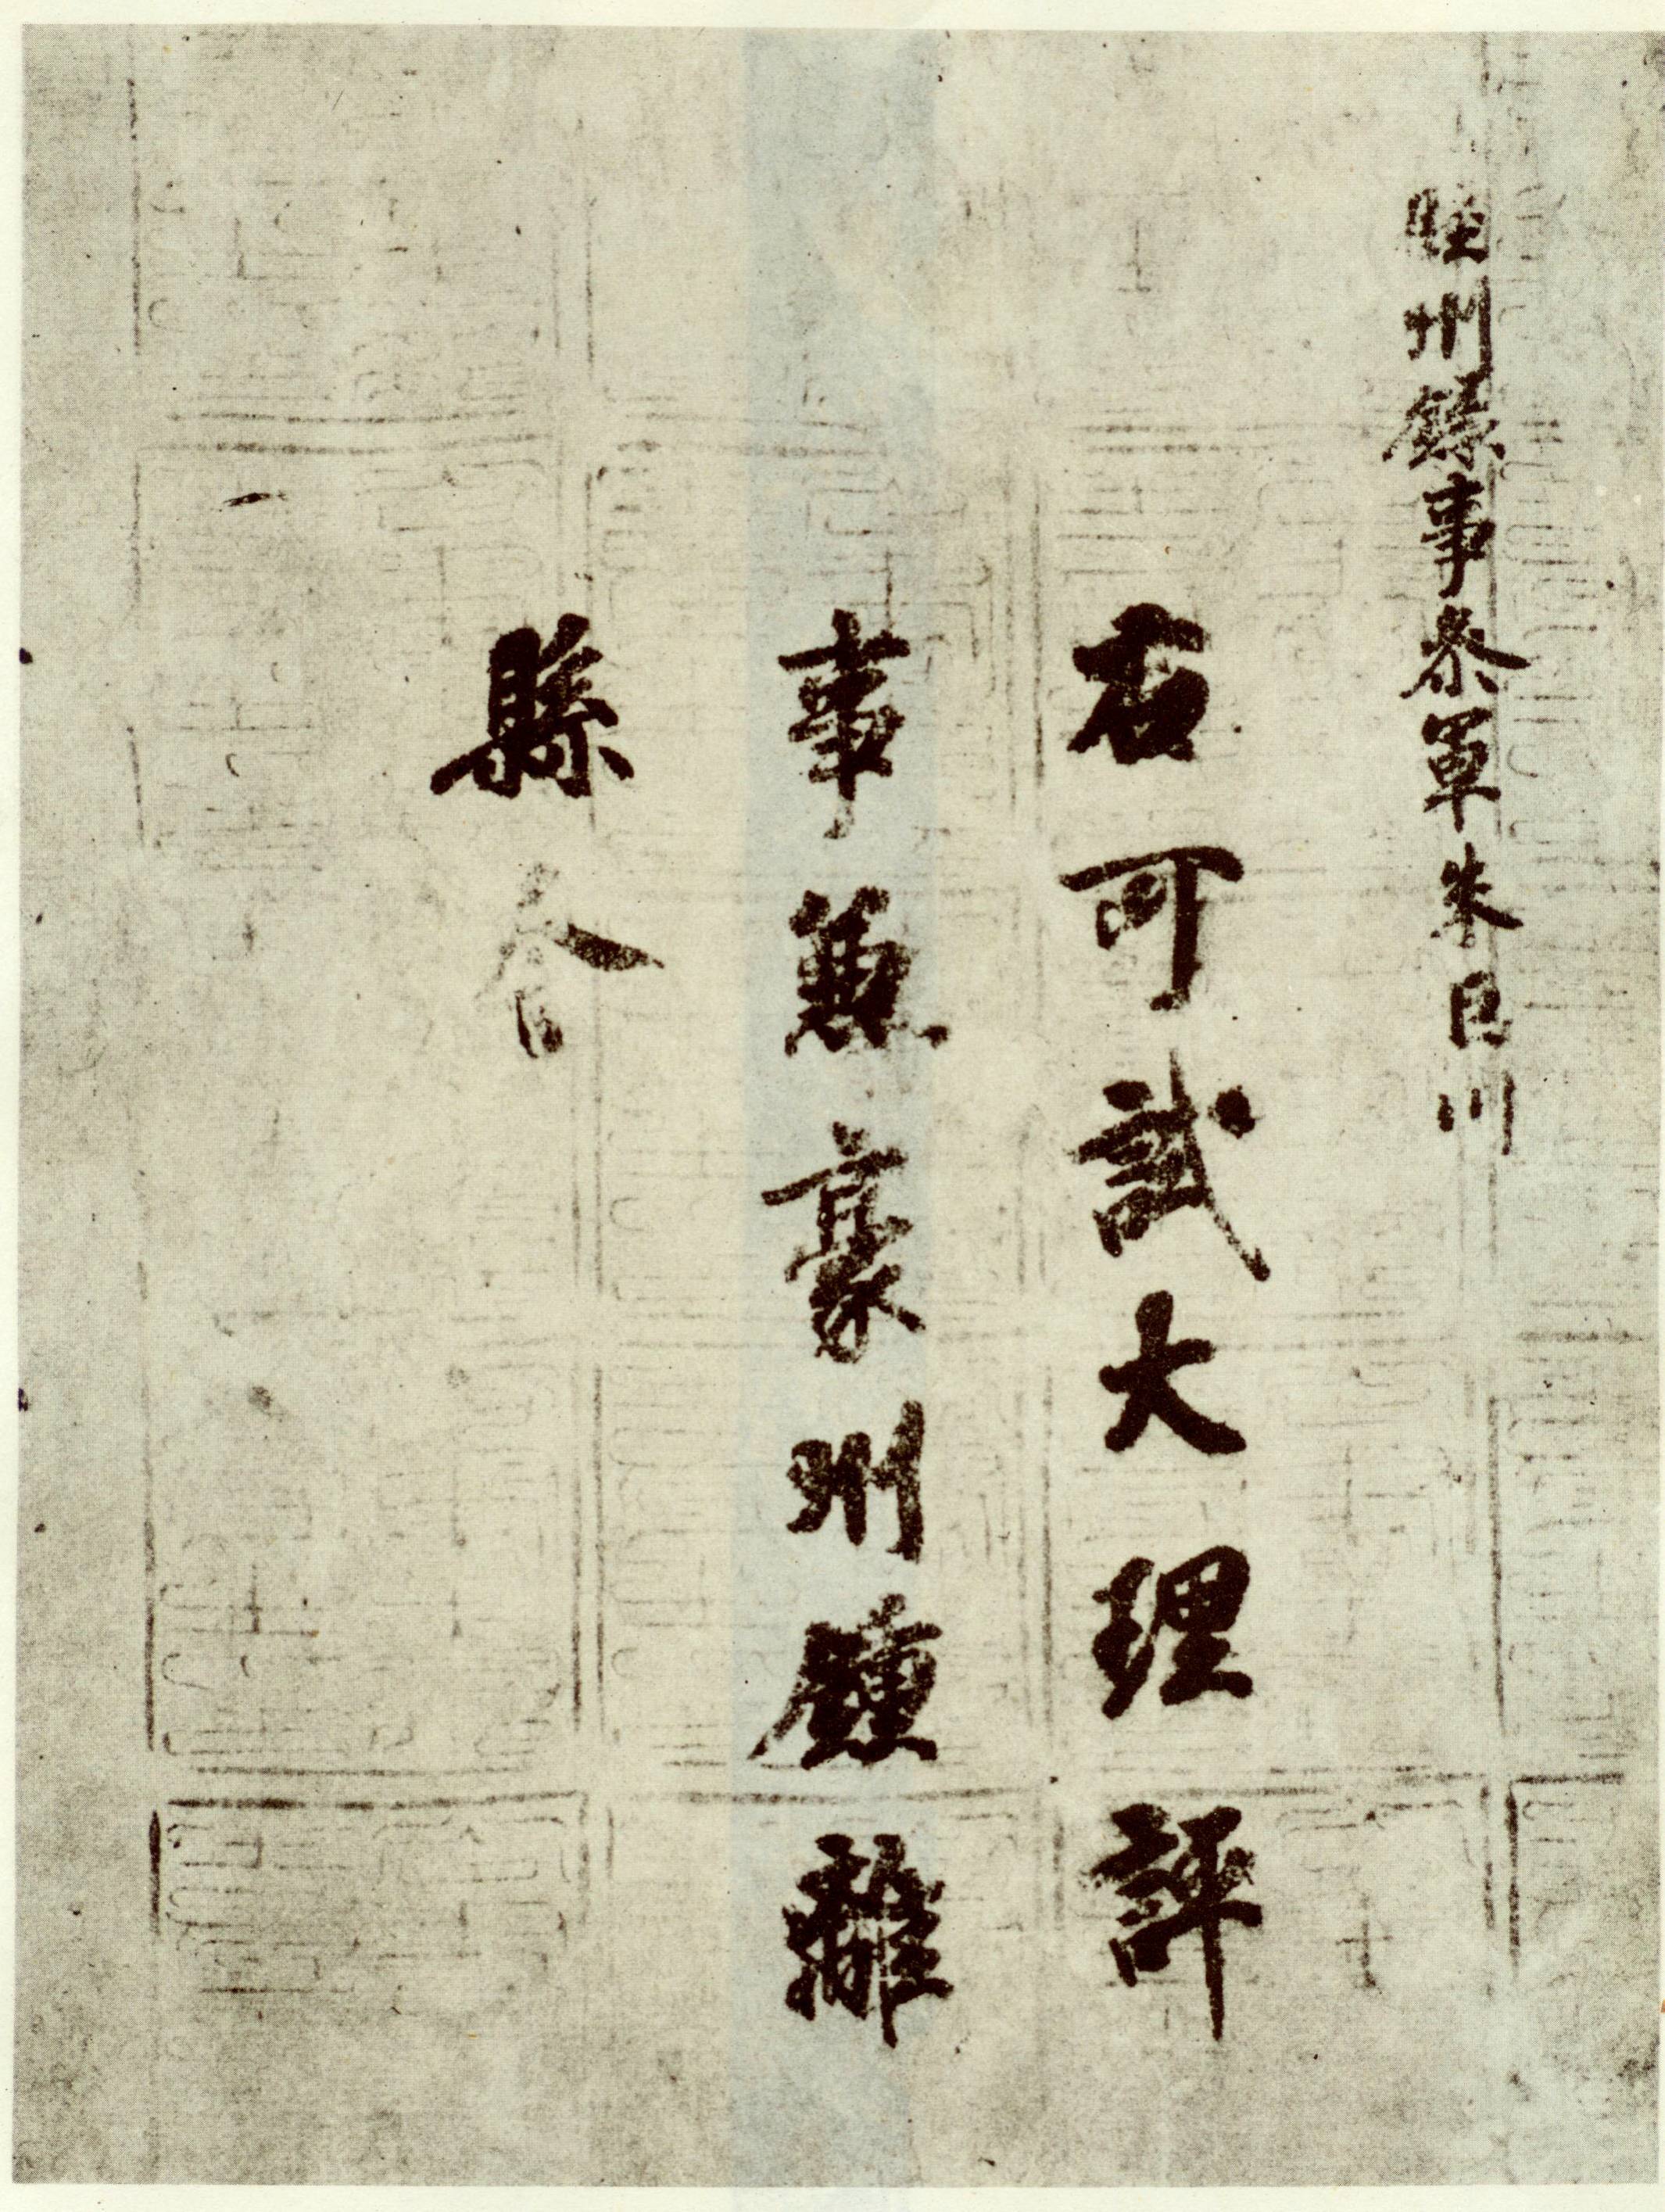 睦州録事參軍朱巨川
右可試大理評
事兼豪州鍾離
縣令